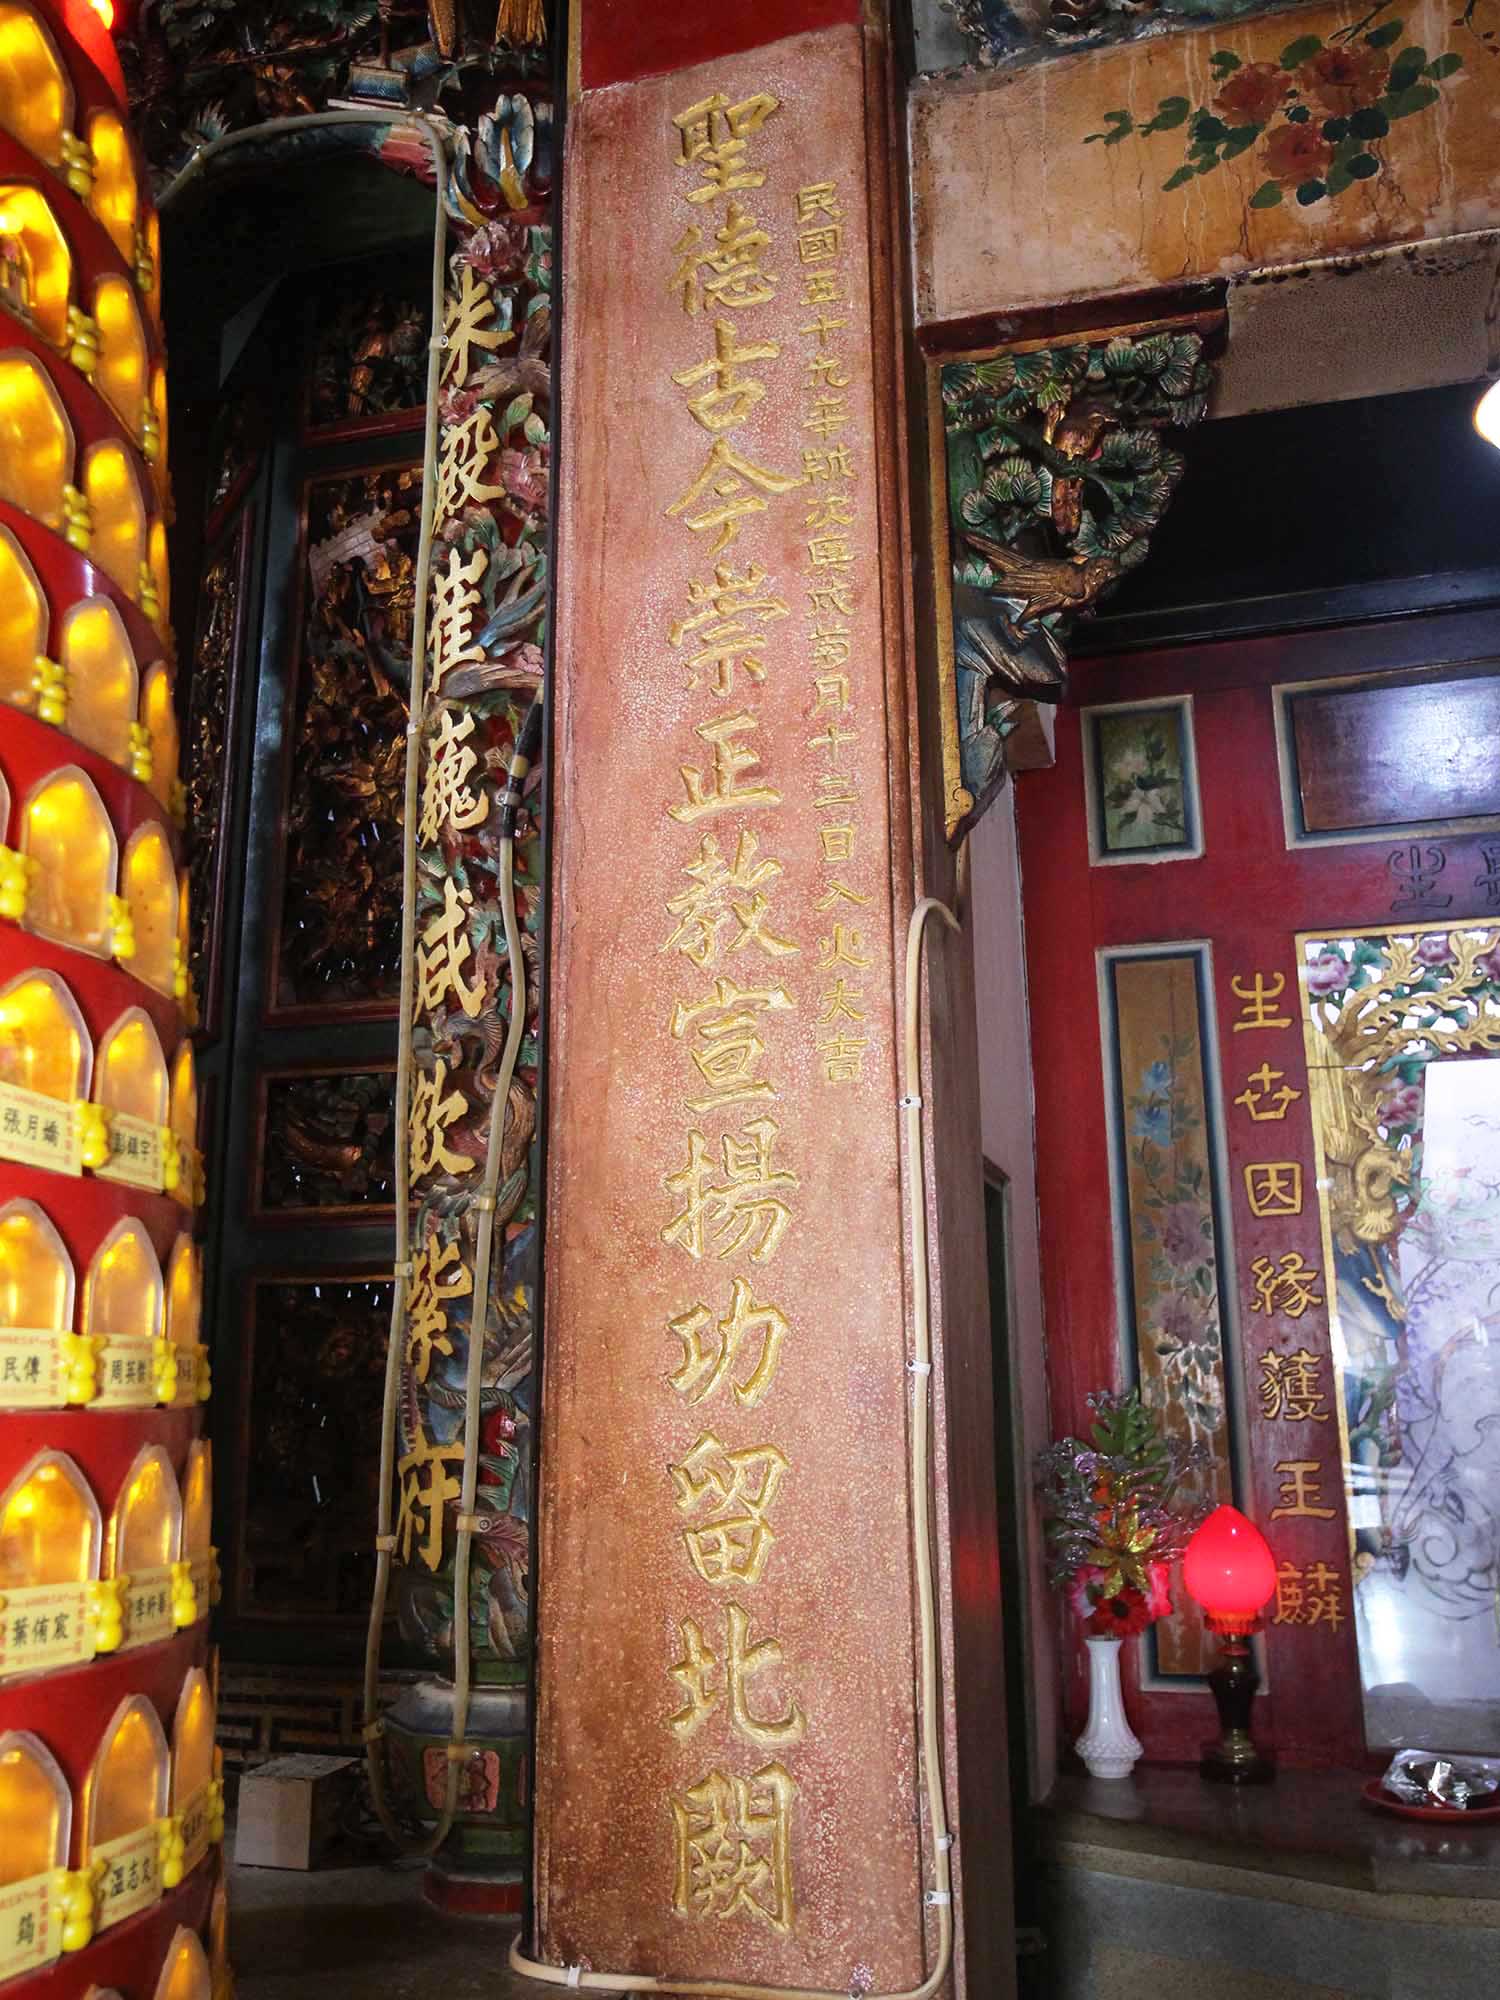 聖德古今崇正教宣揚功留北闕
民國五十九年歲次庚戍菊月十三日入火大吉
朱殿崔巍咸欽紫府
生女因緣獲玉麟
張月嬌
彭鎮宇
民傳
周英傑
葉侑宸
溫志良